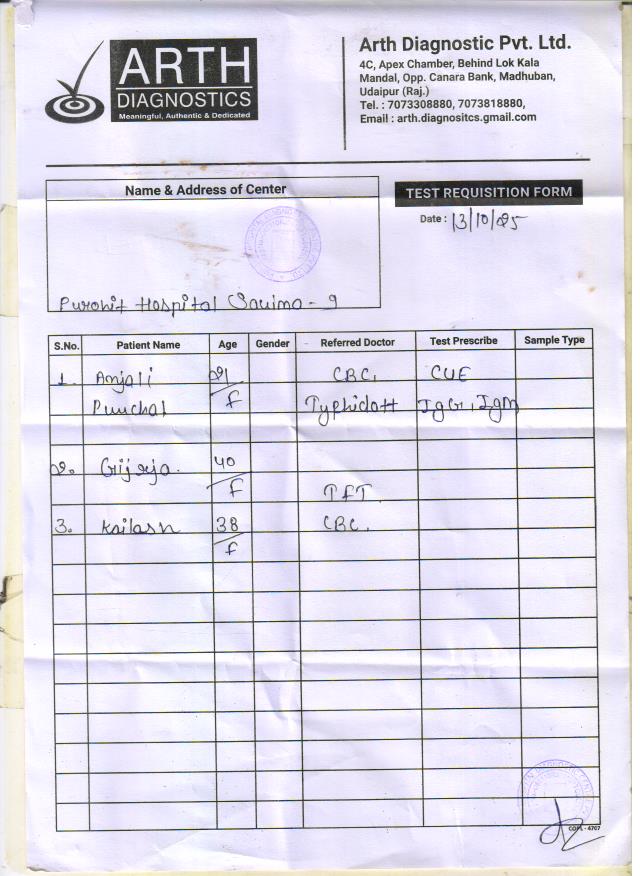 ARTH
DIAGNOSTICS
Meaningful, Authentic & Dedicated
Arth Diagnostic Pvt. Ltd.
4C, Apex Chamber, Behind Lok Kala
Mandal, Opp. Canara Bank, Madhuban,
Udaipur (Raj.)
Tel. : 7073308880, 7073818880,
Email : arth.diagnositcs.gmail.com
Name & Address of Center
TEST REQUISITION FORM
Date : 13/10/25
Purohit Hospital Savima - 9
S.No. Patient Name Age Gender Referred Doctor Test Prescribe Sample Type
1. Anjali 21 CBC, CUE
Punchal F Typhidott IgG, IgM
2. Girja 40
F TFT
3. Kailash 38 CBC.
F
COPL - 4707